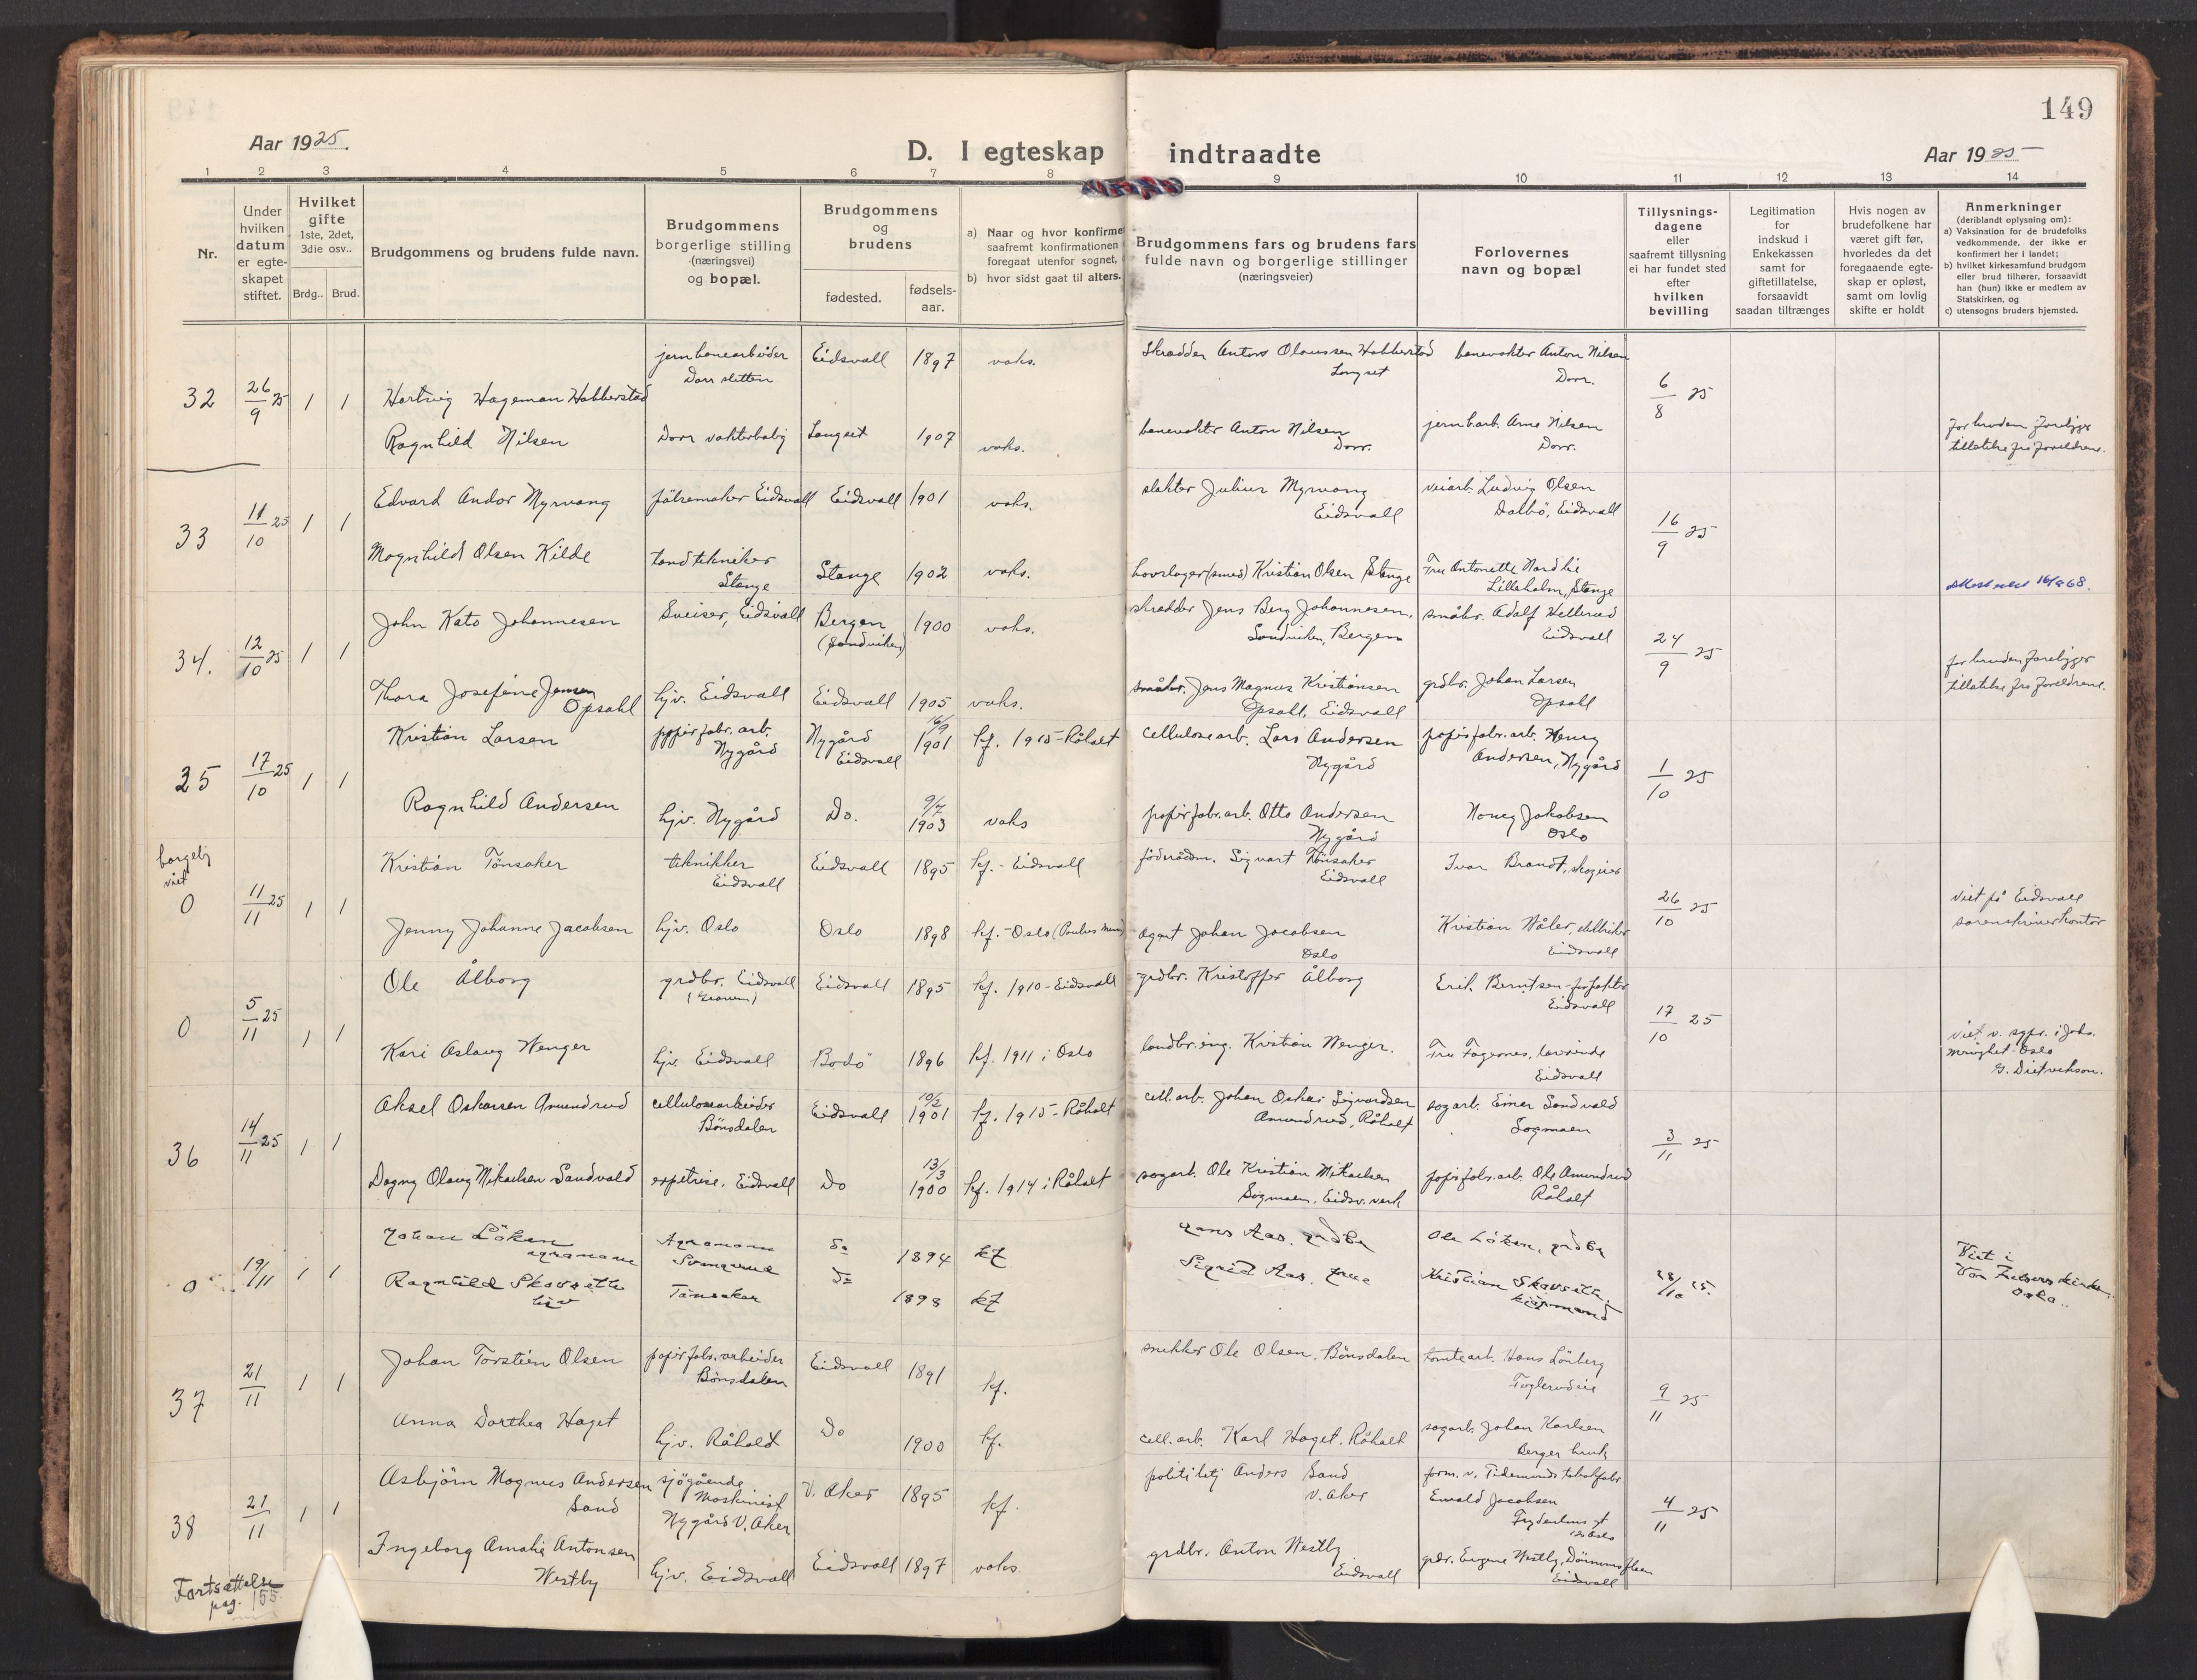 149
Aar 1925.
D. I egteskap indtraadte
Aar 1925
1 2 3 4 5 6 7 8 9 10 11 12 13 14
Nr.
Under
hvilken
datum
er egte-
skapet
stiftet.
Hvilket
gifte
1ste, 2det,
3die osv..
Brdg.. Brud.
Brudgommens og brudens fulde navn.
Brudgommens
borgerlige stilling
(næringsvei)
og bopæl.
Brudgommens
og
brudens
fødested.
fødsels-
aar.
a) Naar og hvor konfirme
saafremt konfirmationen
foregaat utenfor sognet,
b) hvor sidst gaat til alters.
Brudgommens fars og brudens fars
fulde navn og borgerlige stillinger
(næringsveier)
Forlovernes
navn og bopæl
Tillysnings-
dagene
eller
saafremt tillysning
ei har fundet sted
efter
hvilken
bevilling
Legitimation
for
indskud i
Enkekassen
samt for
giftetillatelse,
forsaavidt
saadan tiltrænges
Hvis nogen av
brudefolkene har
været gift før,
hvorledes da det
foregaaende egte-
skap er opløst,
samt om lovlig
skifte er holdt
Anmerkninger
(deriblandt oplysning om):
a) Vaksination for de brudefolks
vedkommende, der ikke er
konfirmert her i landet;
b) hvilket kirkesamfund brudgom
eller brud tilhører, forsaavidt
han (hun) ikke er medlem av
Statskirken, og
c) utensogns bruders hjemsted.
32 26/9 25 1 1 Hartvig Hageman Habberstad
jernbanearbeider
Dorr sletten
Eidsvall 1897 vaks.
Skrædder Antons Olaussen Habberstad
Langset
banevokter Anton Nilsen
Dorr.
6/8 25
Ragnhild Nilsen
Dorr vokterbolig Langset 1907 vaks.
banevokter Anton Nilsen
Dorr.
jernb.arb. Arne Nilsen
Dorr.
for bruden foreligger
tillatelse fra foreldrene.
33 11/10 25 1 1 Edvard Andor Myrvang
Eidsvall Eidsvall 1901 vaks.
slakter Julius Myrvang
Eidsvall
veiarb. Ludvig Olsen
Dalbö, Eidsvall
16/9 25
Magnhild Olsen Kilde
tandtekniker
Stange
Stange 1902 vaks.
hovslager (smed) Kristian Olsen Stange
Fru Antonette Nordlie
Lilleholm, Stange
34. 12/10 25 1 1 John Kato Johannesen
Sveiser, Eidsvall
Bergen
(Sandviken)
1900 vaks.
skrædder Jens Berg Johannesen.
Sandviken, Bergen
småbr. Adolf Hellerud
Eidsvall
24/9 25
Thora Josefine Jensen
Opsahl
hjv. Eidsvall Eidsvall 1905 vaks.
småbr. Jens Magnus Kristiansen
Opsahl, Eidsvall
grdbr. Johan Larsen
Opsahl
for bruden foreligger
tillatelse fra foreldrene.
35 17/10 25 1 1 Kristian Larsen
papirfabr. arb.
Nygård
Nygård
Eidsvall
16/9
1901
kf. 1915 - Råholt
cellulosearb. Lars Andersen
Nygård
papirfabr. arb. Henry
Andersen, Nygård
1/10 25
Ragnhild Andersen
hjv. Nygård Do. 9/7 1903 vaks
papirfabr. arb. Otto Andersen
Nygård
Jakobsen
Oslo
borgelig
viet
0 11/11 25 1 1 Kristian Tönsaker
teknikker
Eidsvall
Eidsvall 1895 kf. - Eidsvall
föderådsm. Sigvart Tönsaker
Eidsvall
Ivar Brandt,
26/10 25
Jenny Johanne Jacobsen
hjv. Oslo Oslo 1898 kf. - Oslo (Paulus men)
Agent Johan Jacobsen
Oslo
Kristian Nåler,
Eidsvall
viet på Eidsvall
sorenskriverkontor
0 5/11 25 1 1 Ole Ålborg
grdbr. Eidsvall
Eidsvall 1895 kf. 1910 - Eidsvall
grdbr. Kristoffer Ålborg
Erik Berntsen - forfatter
Eidsvall
17/10 25
Kari Aslaug Wenger
hjv. Eidsvall Bodö 1896 kf. 1911 i Oslo
landbr. ing. Kristian Wenger.
Fru Fagernes, lærerinde
Eidsvall
viet v. sgpr. i Joh.
menighet - Oslo
G. Dietrichson.
36 14/11 25 1 1 Aksel Oskarsen Amundrud
cellulosearbeider
Bönsdalen
Eidsvall 10/2 1901 kf. 1915 - Råholt
cell. arb. Johan Oskar Sigvardsen
Amundrud, Råholt
sagarb. Einar Sandvald
Sagmoen
3/11 25
Dagny Olaug Mikaelsen Sandvald
Eidsvall Do 13/3 1900 kf. 1914 i Råholt
sagarb. Ole Kristian Mikaelsen
Sagmoen, Eidsv. verk
papirfabr. arb. Ole Amundrud
Råholt
0 19/11 1 1 Johan Löken
agronom
Agronom
Do 1894 kf
Hans Aas. grdbr
Ole Löken, grdbr
28/10 25.
Ragnhild Skavsette
hjv
Tönsaker Do 1898 kf
Sigrid Aas. frue
Kristian Skavsette
kjöpmand
Viet i
Vor Frelsers kirke.
Oslo..
37 21/11 1 1 Johan Torstein Olsen
papirfabr. arbeider
Bönsdalen
Eidsvall 1891 kf.
snekker Ole Olsen, Bönsdalen
tomtearb. Hans Lönberg
9/11 25
Anna Dorthea Haget
hjv. Råholt Do 1900 kf.
cell. arb. Karl Haget. Råholt
sagarb. Johan Karlsen
Berger bruk
38 21/11 1 1 Asbjörn Magnus Andersen
Sand
sjögående
Maskinist
Nygård V. Aker
V. Aker 1895 kf.
politibetj Anders Sand
V. Aker
form. v. Tidemands tobakfabr.
Ewald Jacobsen
Oslo
4/11 25
Ingeborg Amalie Antonsen
Westby
hjv. Eidsvall Eidsvall 1897 vaks.
grdbr. Anton Westby
Eidsvall
Eugene Westby,
Eidsvall
Fortsættelse
pag. 155